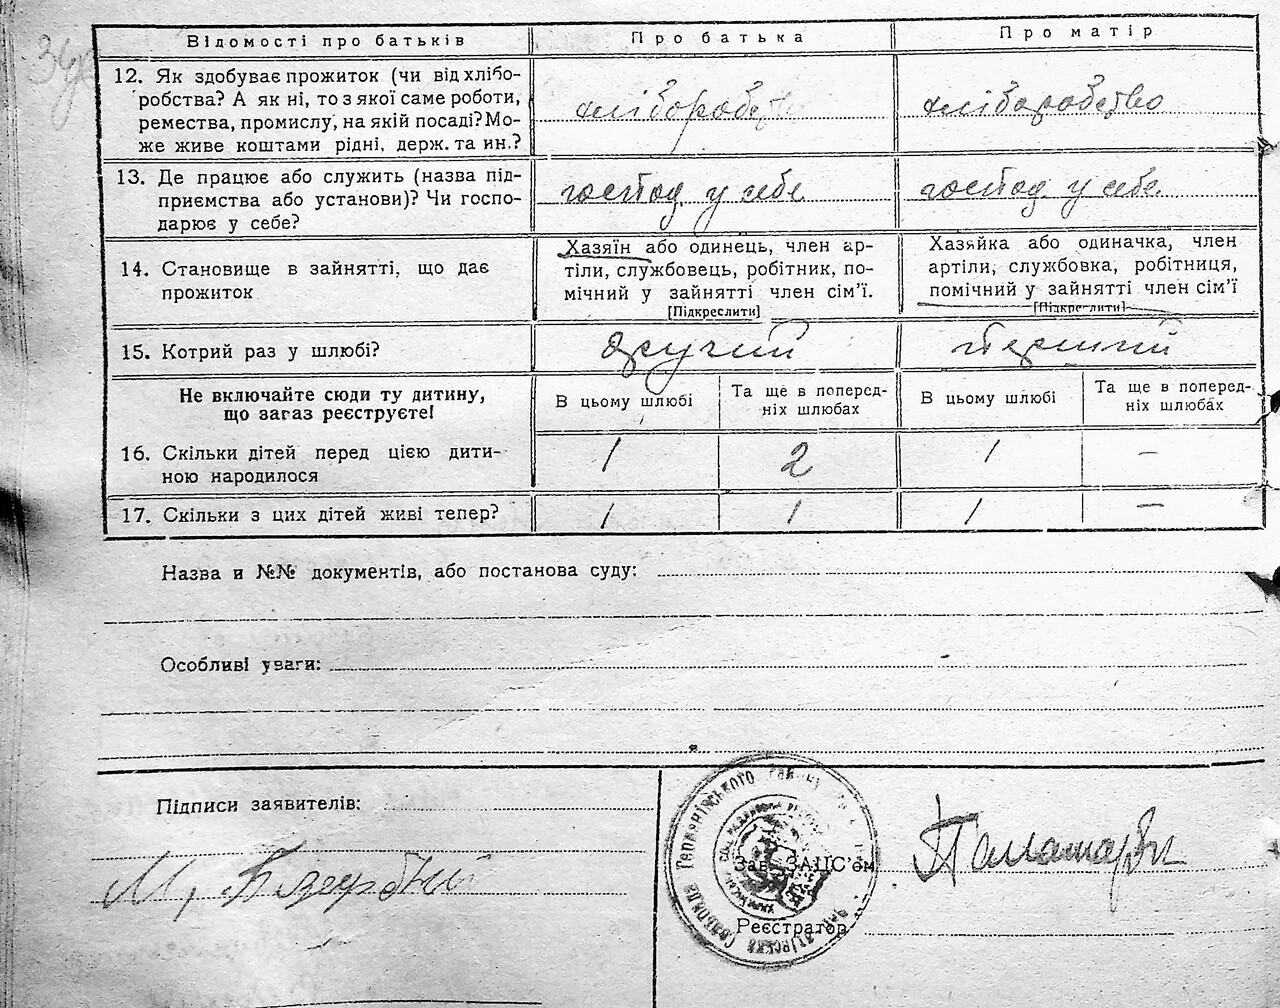 34
Відомості про батьків
Про батька
Про матір
12. Як здобуває прожиток (чи від хлібо-
робства? А як ні, то з якої саме роботи,
ремества, промислу, на якій посаді? Мо-
же живе коштами рідні, держ. та ин.?
хлібороб
хліборобство
13. Де працює або служить (назва під-
приємства або установи)? Чи госпо-
дарює у себе?
господ у себе
господ. у себе.
14. Становище в зайнятті, що дає
прожиток
Хазяїн або одинець, член ар-
тіли, службовець, робітник, по-
мічний у зайнятті член сім'ї.
[Підкреслити]
Хазяйка або одиначка, член
артіли, службовка, робітниця,
помічний у зайнятті член сім'ї
[Підкреслити]
15. Котрий раз у шлюбі?
другий
перший
Не включайте сюди ту дитину,
що зараз реєструєте!
В цьому шлюбі
Та ще в поперед-
ніх шлюбах
В цьому шлюбі
Та ще в поперед-
ніх шлюбах
16. Скільки дітей перед цією дити-
ною народилося
1
2
1
—
17. Скільки з цих дітей живі тепер?
1
1
1
—
Назва и №№ документів, або постанова суду:
Особливі уваги:
Підписи заявителів:
М,
Зав. ЗАЦС'ом
Реєстратор